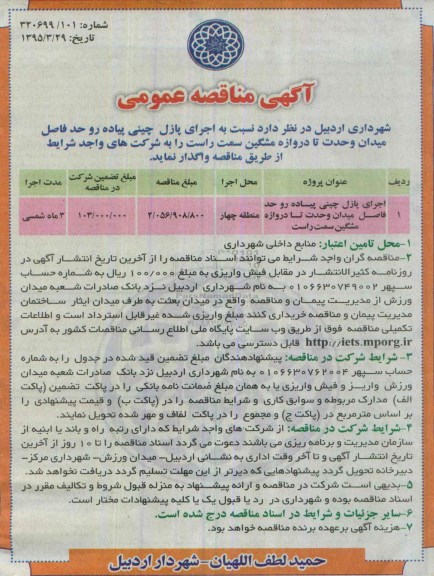 شماره: ۱۰۱/ ۳۲۰۶۹۹
تاریخ: ۱۳۹۵/۳/۲۹
آگهی مناقصه عمومی
شهرداری اردبیل در نظر دارد نسبت به اجرای پازل چینی پیاده رو حد فاصل
میدان وحدت تا دروازه مشگین سمت راست را به شرکت های واجد شرایط
از طریق مناقصه واگذار نماید.
ردیف عنوان پروژه محل اجرا مبلغ مناقصه مبلغ تضمین شرکت در مناقصه مدت اجرا
۱ اجرای پازل چینی پیاده رو حد فاصل میدان وحدت تا دروازه مشگین سمت راست منطقه چهار ۲/۰۵۶/۹۰۸/۸۰۰ ۱۰۳/۰۰۰/۰۰۰ ۳ ماه شمسی
۱-محل تامین اعتبار: منابع داخلی شهرداری
۲-مناقصه گران واجد شرایط می توانند اسناد مناقصه را از آخرین تاریخ انتشار آگهی در
روزنامه کثیرالانتشار در مقابل فیش واریزی به مبلغ ۱۰۰/۰۰۰ ریال به شماره حساب
سپهر ۰۱۰۶۶۳۰۷۴۹۰۰۲ به نام شهرداری اردبیل نزد بانک صادرات شعبه میدان
ورزش از مدیریت پیمان و مناقصه واقع در میدان بعثت به طرف میدان ایثار ساختمان
مدیریت پیمان و مناقصه خریداری کنند مبلغ واریزی شده غیرقابل استرداد است و اطلاعات
تکمیلی مناقصه فوق از طریق وب سایت پایگاه ملی اطلاع رسانی مناقصات کشور به آدرس
http://iets.mporg.ir قابل دسترسی می باشد.
۳- شرایط شرکت در مناقصه: پیشنهاددهندگان مبلغ تضمین قید شده در جدول را به شماره
حساب سپهر ۰۱۰۶۶۳۰۷۶۲۰۰۴ به نام شهرداری اردبیل نزد بانک صادرات شعبه میدان
ورزش واریز و فیش واریزی یا به همان مبلغ ضمانت نامه بانکی را در پاکت تضمین (پاکت
الف) مدارک مربوطه و سوابق کاری و شرایط مناقصه را در (پاکت ب) و قیمت پیشنهادی را
بر اساس مترمربع در (پاکت ج) و مجموع را در پاکت لفاف و مهر شده تحویل نمایند.
۴-شرایط شرکت در مناقصه: از شرکت های واجد شرایط که دارای رتبه راه و باند یا ابنیه از
سازمان مدیریت و برنامه ریزی می باشند دعوت می گردد اسناد مناقصه را تا ۱۰ روز از آخرین
تاریخ انتشار آگهی و تا آخر وقت اداری به نشانی اردبیل- میدان ورزش- شهرداری مرکز-
دبیرخانه تحویل گردد پیشنهادهایی که دیرتر از این مهلت تسلیم گردد دریافت نخواهد شد.
۵-بدیهی است شرکت در مناقصه و ارائه پیشنهاد به منزله قبول شروط و تکالیف مقرر در
اسناد مناقصه بوده و شهرداری در رد یا قبول یک یا کلیه پیشنهادات مختار است.
۶-سایر جزئیات و شرایط در اسناد مناقصه درج شده است.
۷-هزینه آگهی برعهده برنده مناقصه خواهد بود.
حمید لطف اللهیان-شهردار اردبیل